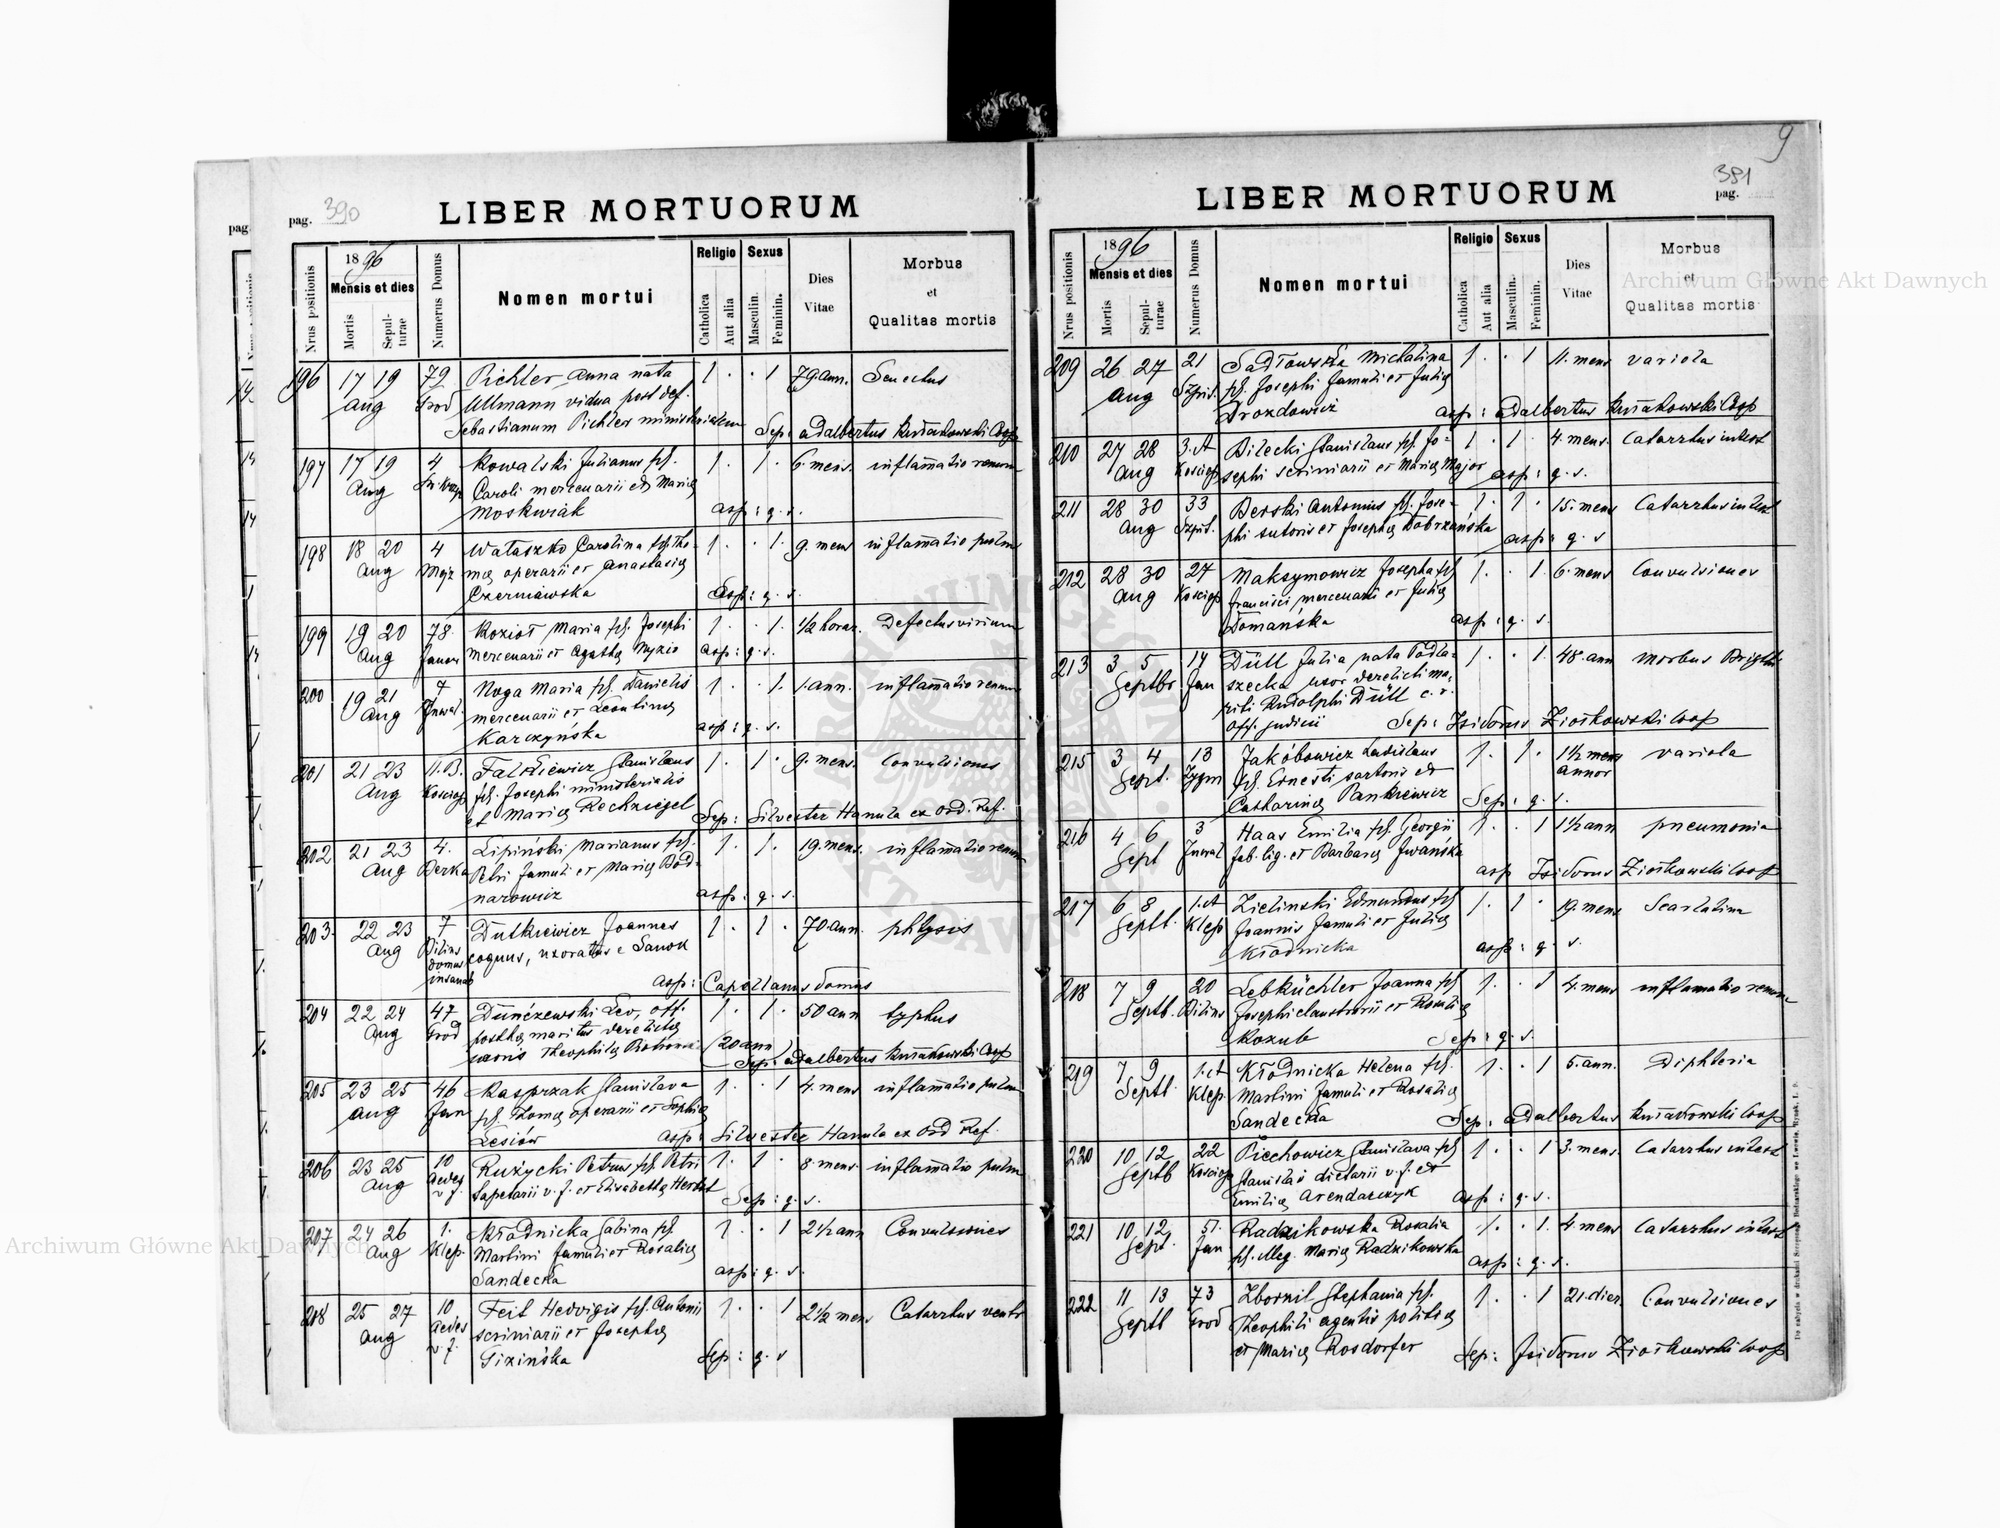 pag. 390
LIBER MORTUORUM
Nrus positionis
1896
Mensis et dies
Mortis
Sepulturae
Numerus Domus
Nomen mortui
Religio
Catholica
Aut alia
Sexus
Masculin.
Feminin.
Dies
Vitae
Morbus
et
Qualitas mortis
196 17 19 79 Pichler Anna nata 1 . . 1 79. ann. Senectus
Aug Grod Ullmann vidua post def.
Sebastianum Pichler ministerialem Sep: Adalbertus Kuniakowski Coop
197 17 19 4 Kowalski Julianus fil. 1 . 1 . 6. mens. inflamatio renum
Aug Caroli mercenarii et Mariae
Moskwiak asp: q. s.
198 18 20 4 Wataszko Carolina fil. Tho- 1 . . 1. 9. mens inflamatio pulm
Aug Mejz mae operarii et Anastasiae
Czerniawska Asp: q. s.
199 19 20 78. Kozioł Maria fil. Josephi 1 . . 1. 1/2 horae. Defectus virium
Aug Janow mercenarii et Agathae Myzio asp: q. s.
200 19 21 7 Noga Maria fil. Danielis 1 . . 1. 1. ann. inflamatio renum
Aug Inwal. mercenarii et Leontinae
Karczyńska asp: q. s.
201 21 23 11.B. Falkiewicz Stanislaus 1 . 1 . 9. mens. Convulsiones
Aug Kosciop fil. Josephi ministerialis
et Mariae Rechziegel Sep: Silvester Hanula ex Ord. Ref.
202 21 23 4. Lipiński Marianus fil. 1 . 1 . 19. mens. inflamatio renum
Aug Berka Petri famuli et Mariae Bod-
narowicz asp: q. s.
203. 22 23 7 Dutkiewicz Joannes 1 . 1 . 70 ann. phtysis
Aug Pilins coquus, uxoratus e Sanok
domus
insanab asp: Capellanus domus
204 22 24 47 Dunczewski Leo, off. 1 . 1 . 50 ann typhus
Aug Grod posthae maritus derelictae
uxoris Theophilae (20 ann)
Sep: Adalbertus Kuniakowski Coop
205 23 25 46 Kasprzak Stanislava 1 . . 1 4. mens inflamatio pulm
Aug Jan fil. Thomae operarii et Sophiae
Lesiów asp: Silvester Hanula ex Ord Ref.
206 23 25 10 Ruzycki Petrus fil. Petri 1 . 1 . 8. mens. inflamatio pulm
Aug aedes tapetarii v. f. et Elisabettae Herbst
v. f. Sep: q. s.
207 24 26 1. Kłodnicka Sabina fil. 1 . . 1 2 1/2 ann Convulsiones
Aug Klep. Martini famuli et Rosaliae
Sandecka asp: q. s.
208 25 27 10 Feit Hedvigis fil. Antonii 1 . . 1 2 1/2 mens Catarrhus ventr
Aug aedes scriniarii et Josephae
v. f. Gizińska Sep: q. s
9
381
pag.
LIBER MORTUORUM
Nrus positionis
1896
Mensis et dies
Mortis
Sepulturae
Numerus Domus
Nomen mortui
Religio
Catholica
Aut alia
Sexus
Masculin.
Feminin.
Dies
Vitae
Morbus
et
Qualitas mortis
209 26 27 21 Sadłowska Michalina 1 . . 1 11. mens variola
Aug Szpit. fil. Josephi famuli et Juliae
Drozdowicz asp: Adalbertus Kuniakowski Coop
210 27 28 3.A Bilecki Stanislaus fil. Jo- 1 . 1 . 4. mens. Catarrhus intest
Aug Kosciop sephi scriniarii et Mariae Major asp: q. s.
211 28 30 33 Berski Antonius fil. Jose- 1 . 1 . 15. mens Catarrhus intest
Aug Szpit. phi sutoris et Josephae Dobrzańska asp: q. s
212 28 30 27 Maksymowicz Josepha fil 1 . . 1. 6. mens Convulsiones
Aug Kosciop francisci mercenarii et Juliae
Domańska asp: q. s.
213 3 5 14 Düll Julia nata Podla- 1 . . 1. 48. ann morbus Brightii
Septbr. Jan szecka uxor derelicti ma-
riti Rudolphi Düll c. r.
off. judicii Sep: Isidorus Ziołkowski Coop
215 3 4 13 Jakóbowicz Ladislaus 1 . 1 . 1 1/2 mens variola
Sept. Zygm fil. Ernesti sartoris et annor
Catharinae Pankiewicz Sep: q. s.
216 4 6 3 Haas Emilia fil. Georgii 1 . . 1 1 1/2 ann pneumonia
Sept Inwal fab. lig. et Barbarae Iwańska asp Isidorus Ziołkowski Coop
217 6 8 1.A Zielinski Edmundus fil 1 . 1 . 19. mens Scarlatina
Septb. Klep Joannis famuli et Juliae
Kłodnicka asp: q. s.
218 7 9 20 Lebküchler Joanna fil 1 . . 1 4. mens inflamatio renum
Septb. Pilins Josephi claustrarii et Rosaliae
Kozub Sep: q. s.
219 7 9 1.A Kłodnicka Helena fil. 1 . . 1 5. ann. Diphteria
Septb. Klep. Martini famuli et Rosaliae
Sandecka Sep: Adalbertus Kuniakowski Coop
220 10 12 22 Piechowicz Stanislava fil 1 . . 1 3. mens. Catarrhus intest
Septb Kosciop Stanislai dietarii v. f. et
Emiliae Arendarczyk asp: q. s.
221 10 12 51. Radzikowska Rosalia 1 . . 1. 4. mens Catarrhus intest
Sept. Jan fil. illeg. Mariae Radzikowska asp: q. s.
222 11 13 73 Zbornil Stephania fil. 1 . . 1 21. dier. Convulsiones
Septb Grod Theophili agentis politiae
et Mariae Rosdorfer Sep: Isidorus Ziołkowski Coop
Archiwum Główne Akt Dawnych
Archiwum Główne Akt Dawnych
ARCHIWUM GŁÓWNE AKT DAWNYCH